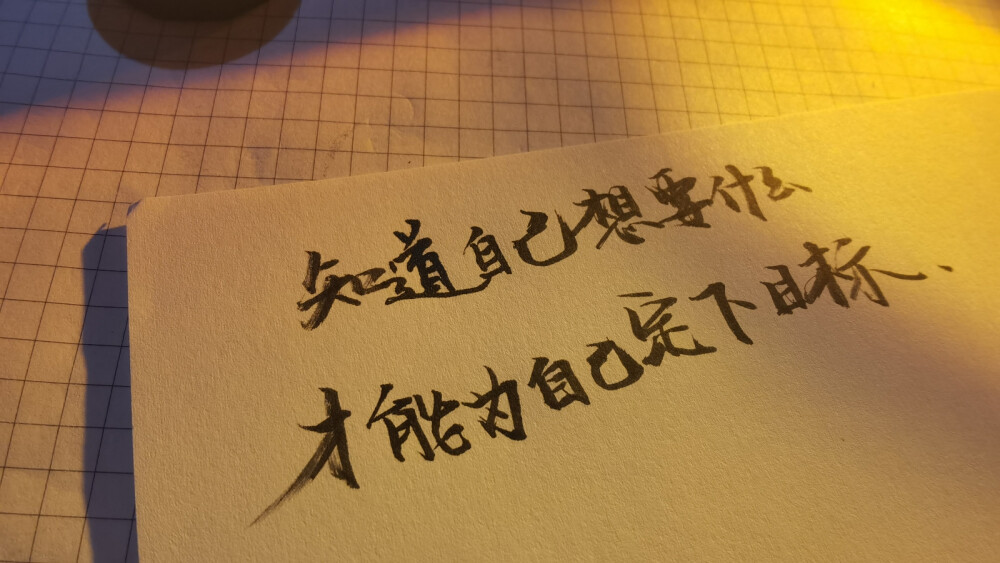 知道自己想要什么
才能为自己定下目标.